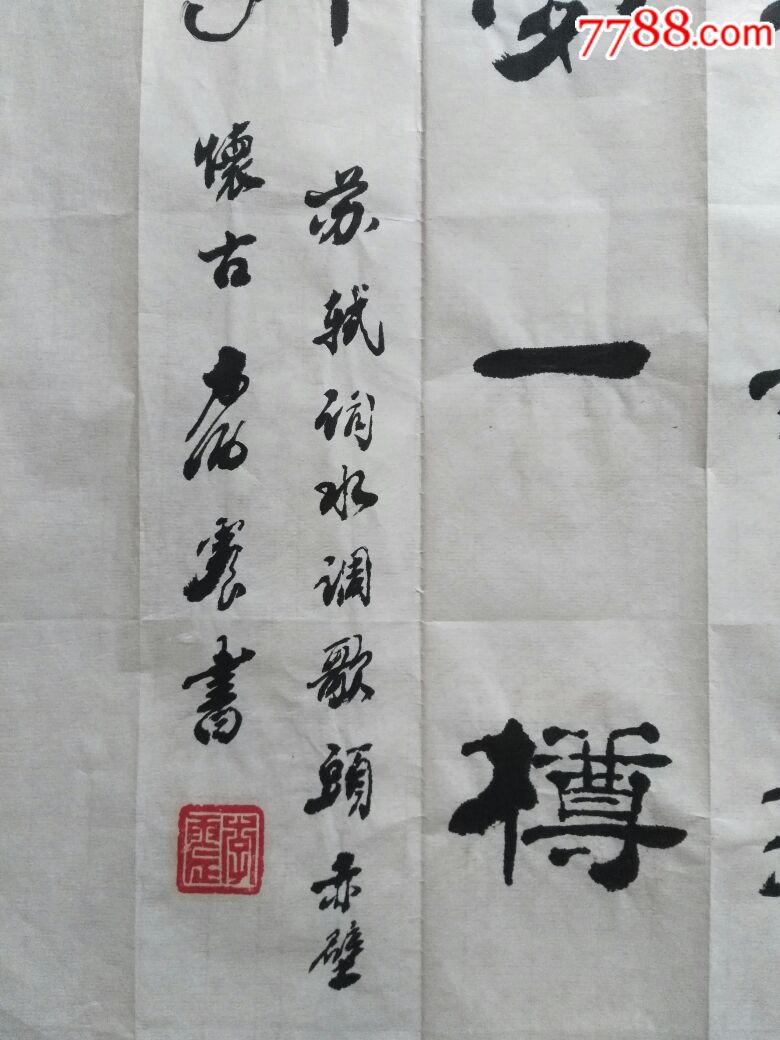 7788.com
一樽
苏轼词水调歌頭赤壁
懷古 書